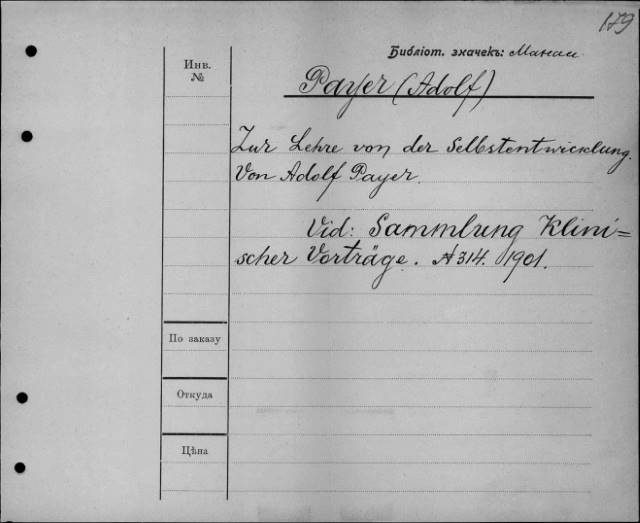 179
Библіот. значекъ:
Инв.
№
Payer (Adolf)
Zur Lehre von der Selbstentwicklung.
Von Adolf Payer.
Vid: Sammlung Klini=
scher Vorträge. № 314. 1901.
По заказу
Откуда
Цѣна